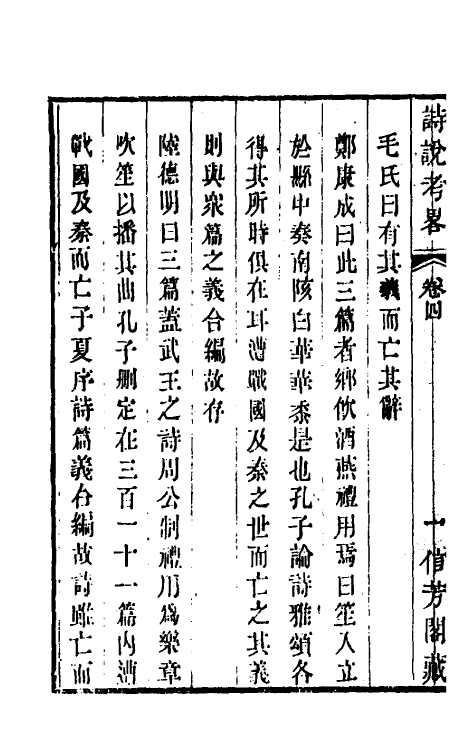 詩說考畧 卷四 一 借芳閣藏
毛氏曰有其義而亡其辭
鄭康成曰此三篇者鄉飲酒燕禮用焉曰笙入立
於縣中奏南陔白華華黍是也孔子論詩雅頌各
得其所時俱在耳遭戰國及秦之世而亡之其義
則與眾篇之義合編故存
陸德明曰三篇蓋武王之詩周公制禮用爲樂章
吹笙以播其曲孔子刪定在三百一十一篇內遭
戰國及秦而亡子夏序詩篇義合編故詩雖亡而